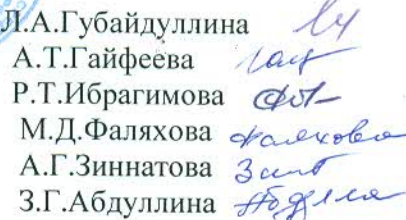 Л.А.Губайдуллина
А.Т.Гайфеева
Р.Т.Ибрагимова
М.Д.Фаляхова Фаляхова
А.Г.Зиннатова
З.Г.Абдуллина